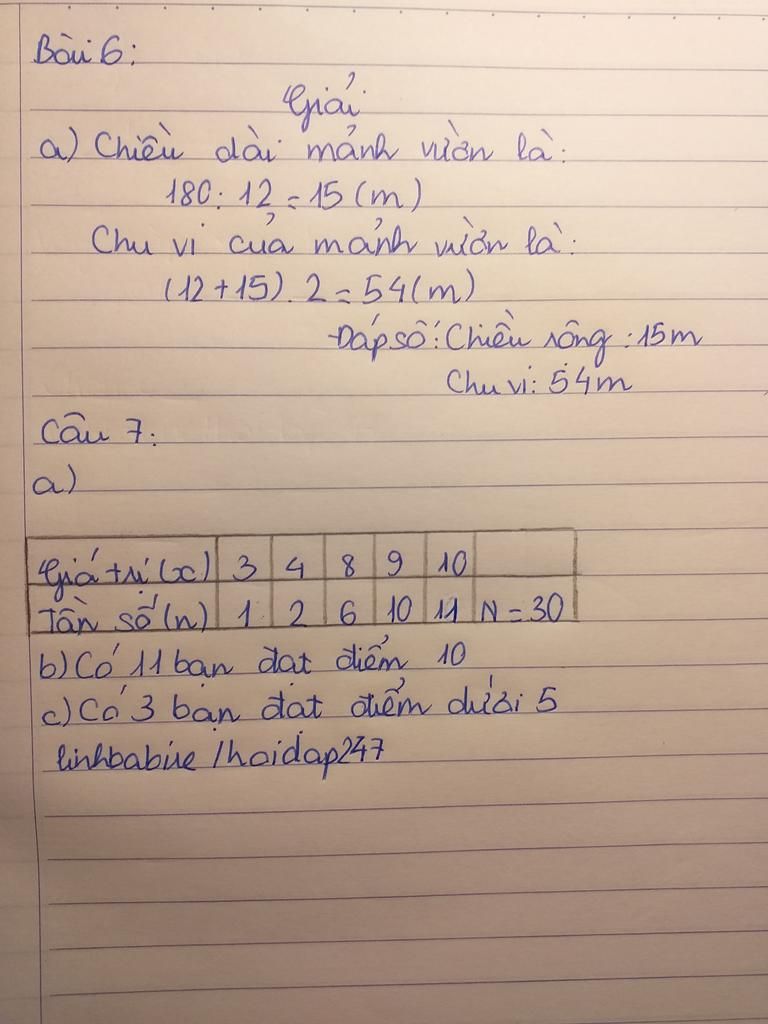 Bài 6:
Giải
a) Chiều dài mảnh vườn là:
180 : 12 = 15 (m)
Chu vi của mảnh vườn là:
(12 + 15) . 2 = 54 (m)
Đáp số: Chiều rộng : 15m
Chu vi: 54m
Câu 7:
a)
Giá trị (x) 3 4 8 9 10
Tần số (n) 1 2 6 10 11 N = 30
b) Có 11 bạn đạt điểm 10
c) Có 3 bạn đạt điểm dưới 5
linhbabiie / hoidap247